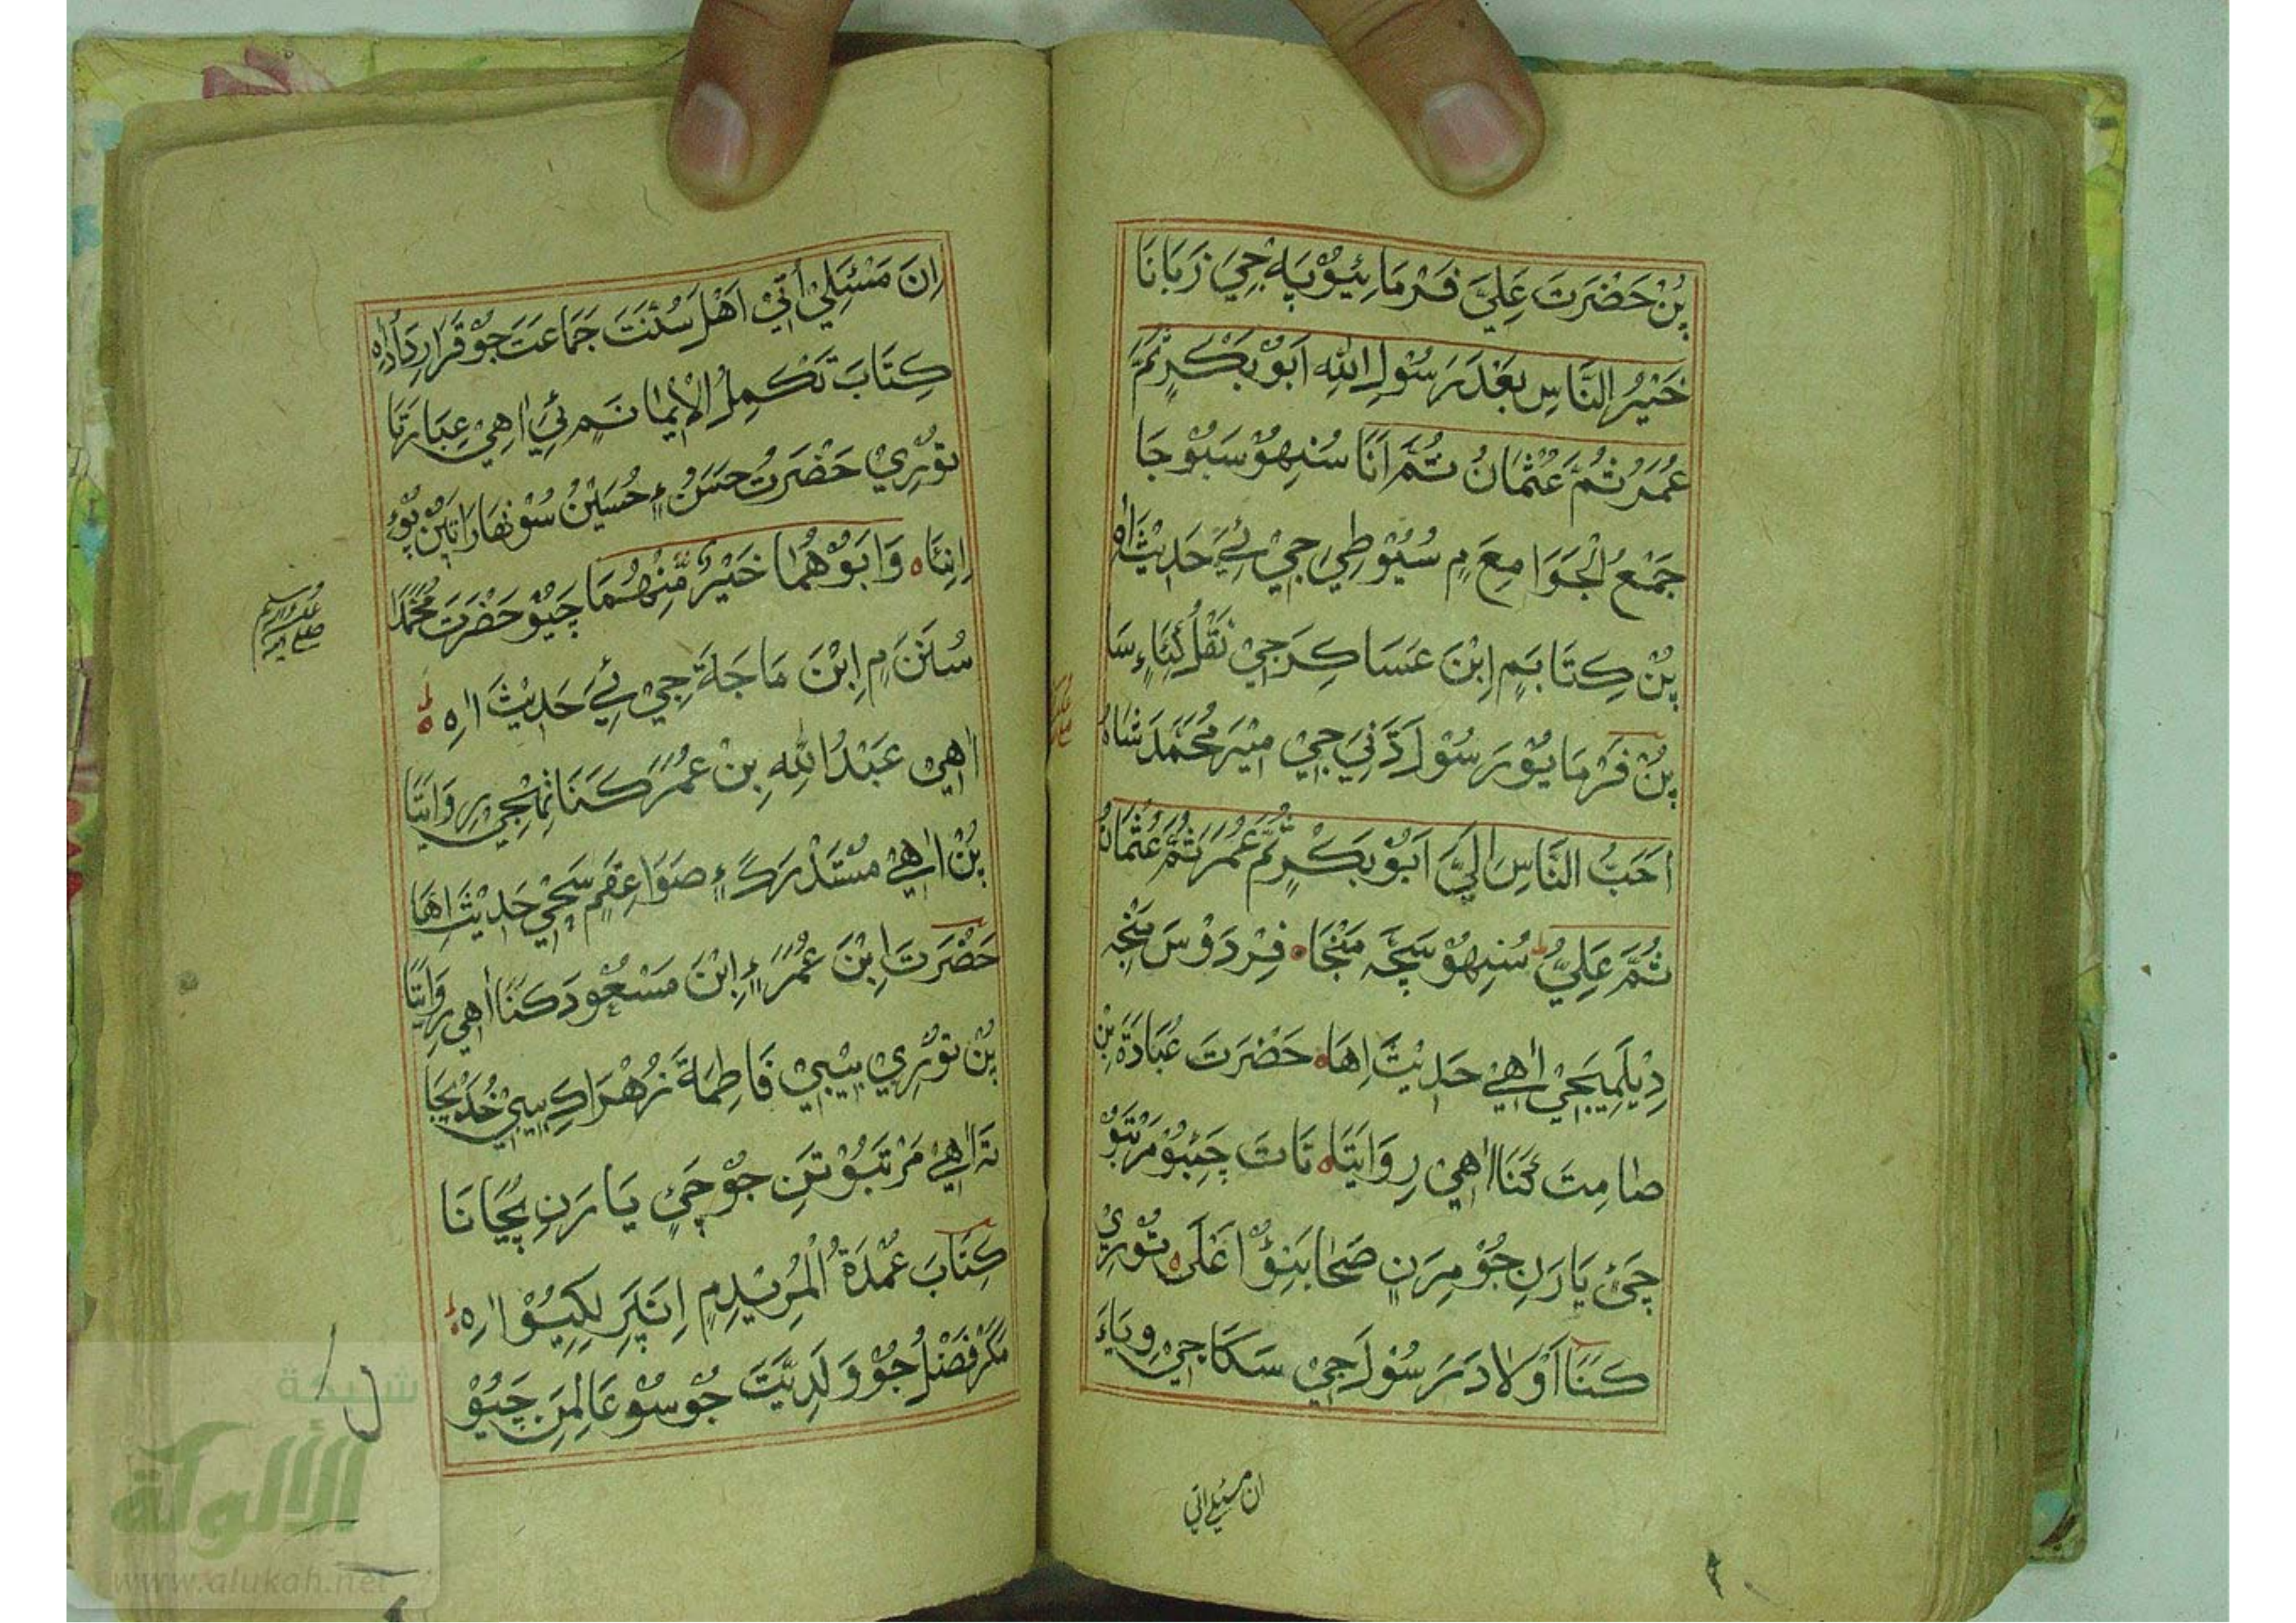 پُنْ حَضْرَتَ عَلِيَّ فَرْمَائِيُوْ پَہِ جِيْ زَبَانَا
خَيْرُ النَّاسِ بَعْدَ رَسُوْلِ اللّٰهِ اَبُوْ بَكْرٍ ثُمَّ
عُمَرُ ثُمَّ عُثْمَانُ ثُمَّ اَنَا سُنِهُوْ سَبُوْ جَا
جَمْعُ الْجَوَامِعَ ۾ سُيُوْطِيَ جِيْ ئِيَ حَدِيْثَ اٰهِ
پُنْ كِتَابَ ۾ اِبْنَ عَسَاكِرَ جِيْ نَقْلُ كَيَا ءِ سَا
پُنْ فَرْمَايُوْ رَسُوْلَ ڌَڻِيَ جِيْ مِيْرَ مُحَمَّدَ شَاهَ
اَحَبُّ النَّاسِ اِلَيَّ اَبُوْ بَكْرٍ ثُمَّ عُمَرُ ثُمَّ عُثْمَانُ
ثُمَّ عَلِيٌّ سُنِهُوْ سَچَہ مَنْجَا فِرْدَوْسَ مَنْجِہ
دِيْلَمِيَ جِيْ اٰهِيْ حَدِيْثَ اِهَا حَضْرَتَ عُبَادَةَ بِنْ
صَامِتَ كَنَا اٰهِيْ رِوَايَتَا تَاتَ چَئِبُوْ مَرْتَبُوْ
چَئِ يَارَنِ جُوْ مِرَنِ صَحَابَنِؤُ اَعْلَى تُوْرِيْ
كَنَا اَوْلَادَ رَسُوْلَ جِيْ سَكَا جِيْ وِيَاءَ
ان مسئلي اتي
اِنَ مَسْئَلِيْ اُتِيْ اَهْلَ سُنَّتَ جَمَاعَتَ جُوْ قَرَارِدَادُ اٰهِ
كِتَابَ تَكْمِلُ الْاِيْمَانَ ۾ ئِيَ اٰهِيْ عِبَارَتَا
تُوْرِيْ حَضْرَتُ حَسَنُ ءِ حُسَيْنُ سُوْنهَارَا تَنِ پُؤِ
اِنِئَا وَاَبُوْهُمَا خَيْرٌ مِّنْهُمَا چَيُوْ حَضْرَتَ مُحَمَّدَا
صلى الله عليه وسلم
سُنَنَ ۾ اِبْنَ مَاجَةَ جِيْ ئِيَ حَدِيْثَ اٰهِ
اٰهِيْ عَبْدُ اللّٰهِ بِنْ عُمَرَ كَنَا تَنْهِجِيْ رِوَايَتَا
پُنْ اٰهِيْ مُسْتَدْرَكَ ءِ صَوَاعِقَ ۾ سَچِيْ حَدِيْثَ اِهَا
حَضْرَتَ اِبْنَ عُمَرَ ءِ اِبْنَ مَسْعُوْدَ كَنَا اٰهِيْ رِوَايَتَا
پُنْ تُوْرِيْ بِيْبِيْ فَاطِمَةَ زُهْرَا كِ بِيْبِيْ خُدَيْجَا
تَہ اٰهِيْ مَرْتَبُوْ تَنِ جُوْ چَئِ يَارَنِ پُڄَانَا
كِتَابَ عُمْدَةُ الْمُرِيْدِ ۾ اِنَپَرِ لِكِيُوْ اٰهِ
مَگَرْ فَضْلُ جُوْ وَلَدِيَّتَ جُوْ سُوْ عَالِمَنِ چَيُوْ
شبكة
الألوكة
www.alukah.net